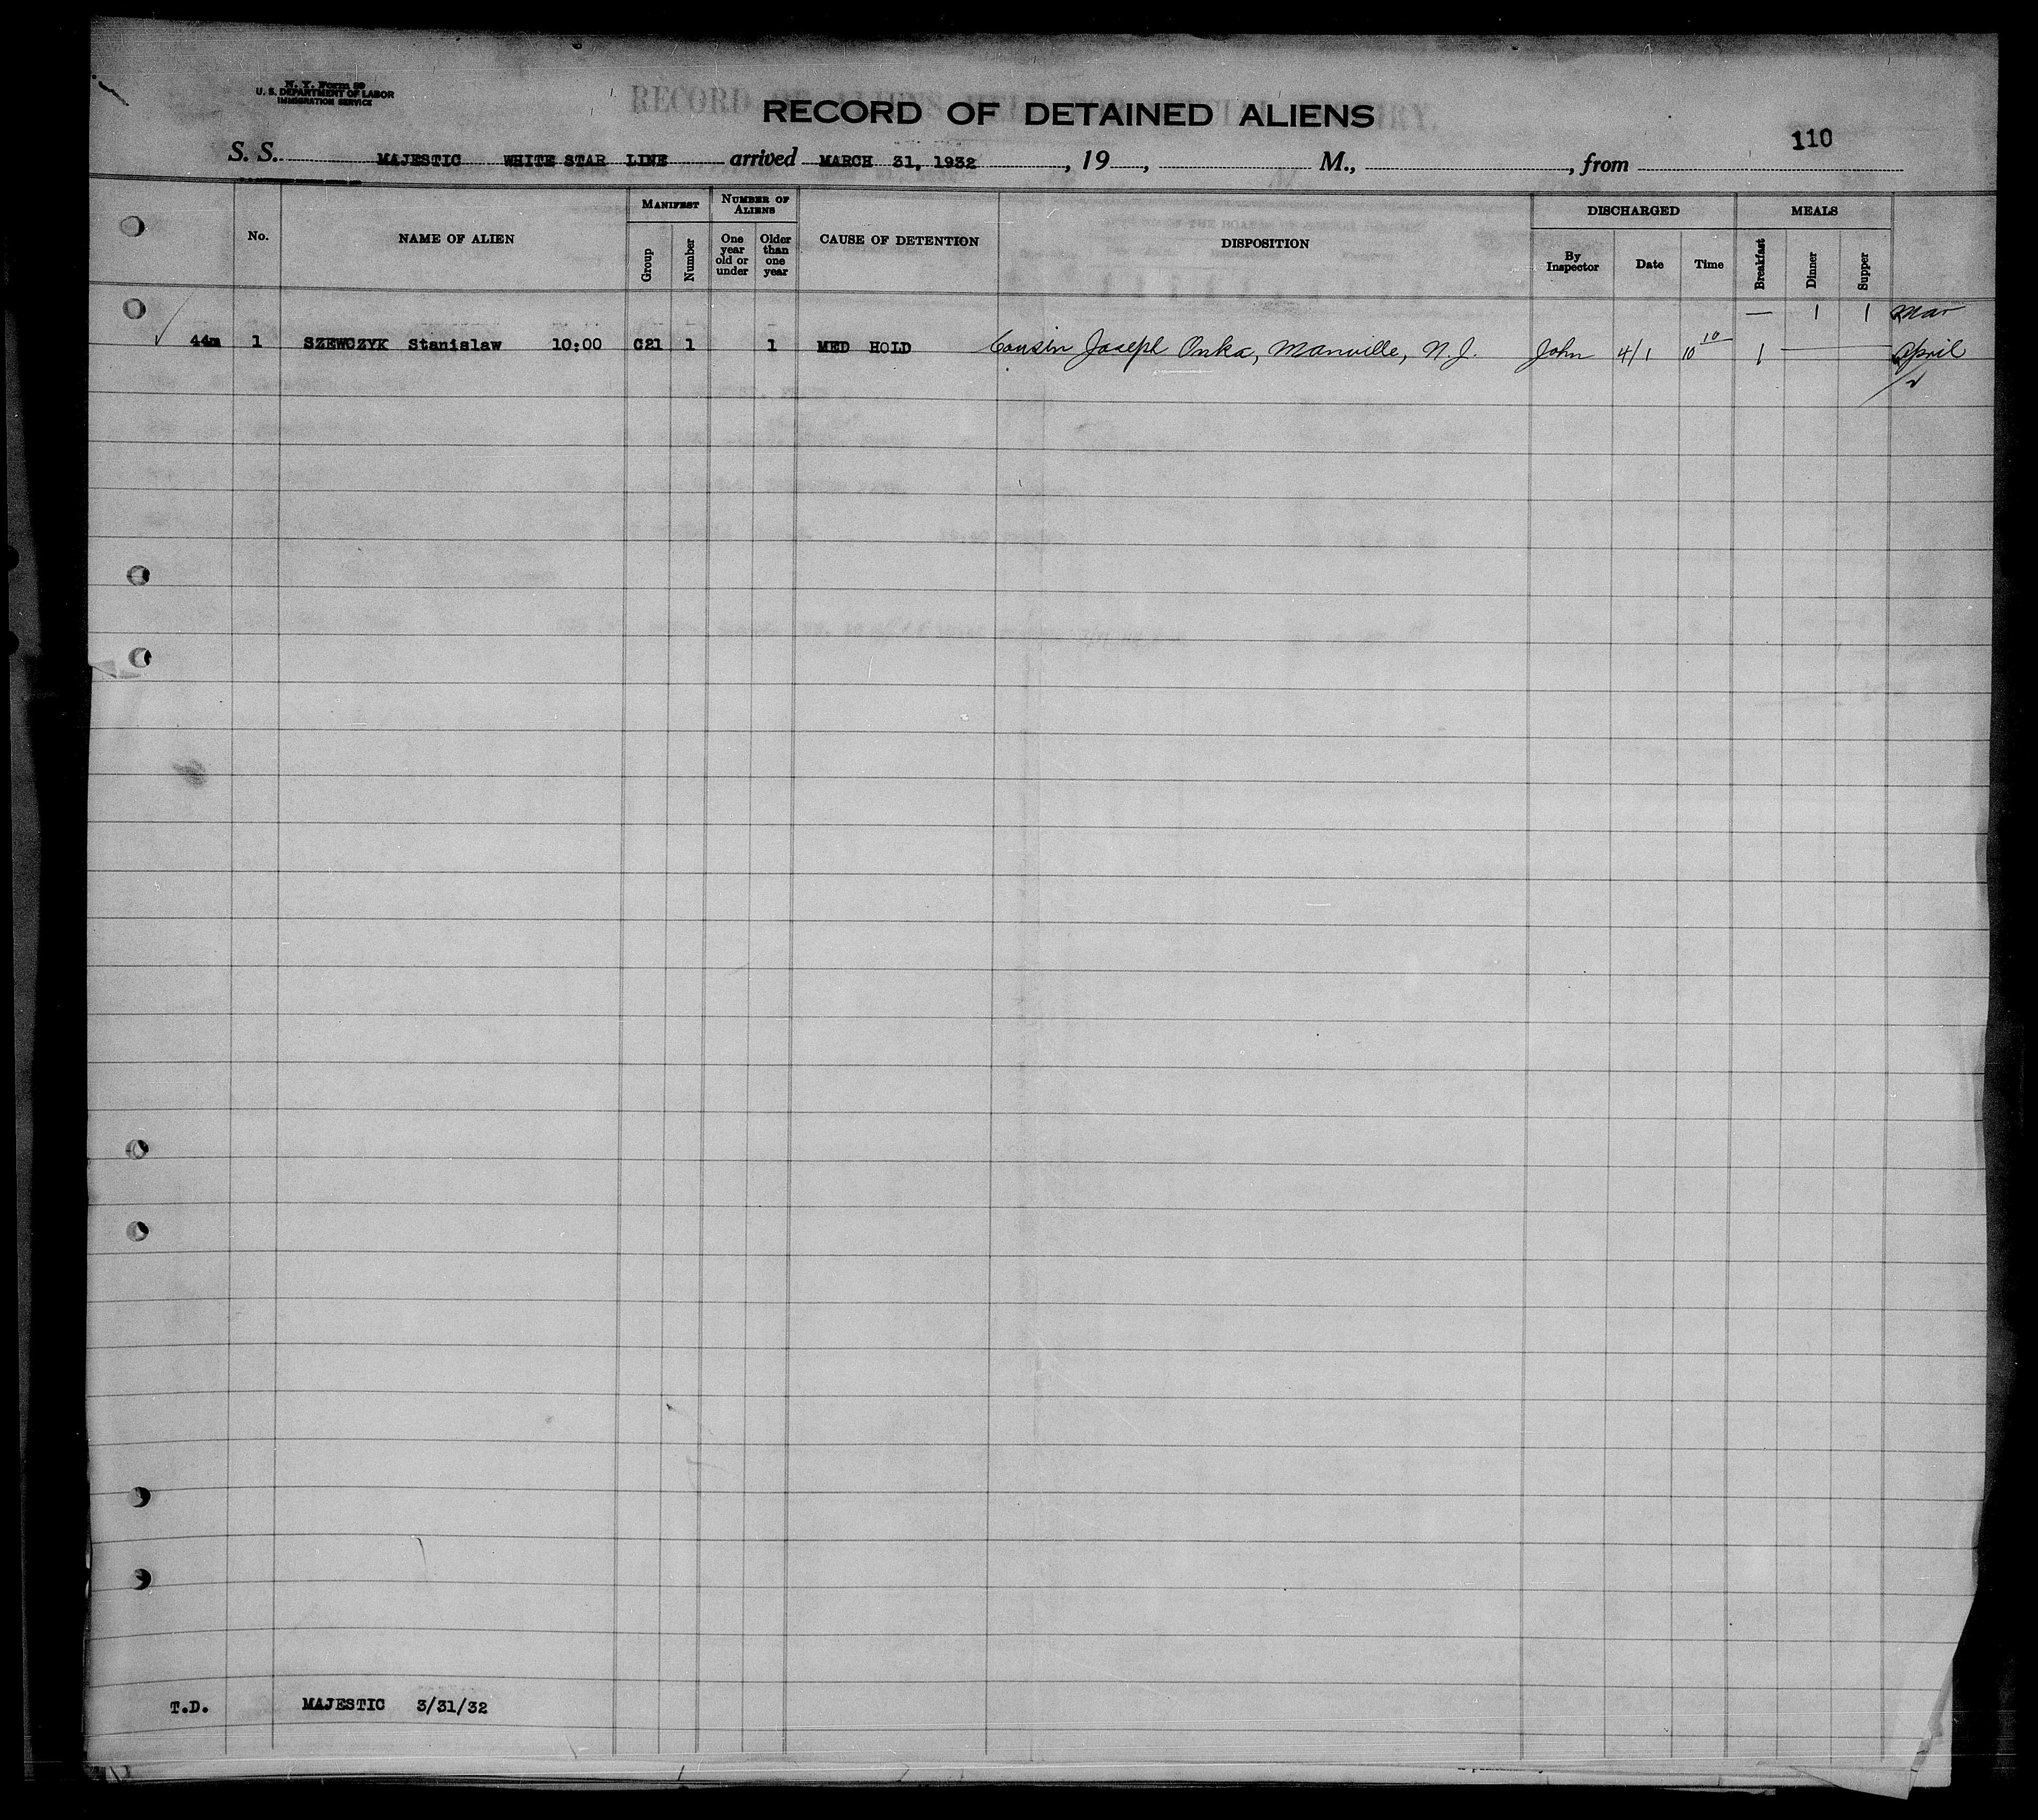 N. Y. Form 99
U. S. DEPARTMENT OF LABOR
IMMIGRATION SERVICE
RECORD OF DETAINED ALIENS
110
S. S. MAJESTIC WHITE STAR LINE arrived MARCH 31, 1932, 19 , M., , from
No.
NAME OF ALIEN
MANIFEST
Group
Number
NUMBER OF ALIENS
One year old or under
Older than one year
CAUSE OF DETENTION
DISPOSITION
DISCHARGED
By Inspector
Date
Time
MEALS
Breakfast
Dinner
Supper
— 1 1 Mar
44m 1 SZEWCZYK Stanislaw 10:00 C21 1 1 MED HOLD Cousin Joseph Onka, Manville, N.J. John 4/1 10 10 1 April
T.D. MAJESTIC 3/31/32